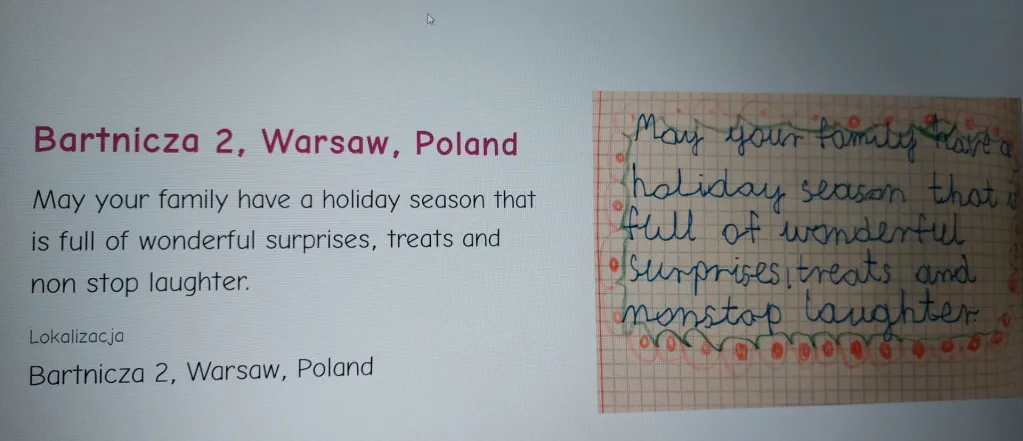 Bartnicza 2, Warsaw, Poland
May your family have a holiday season that
is full of wonderful surprises, treats and
non stop laughter.
Lokalizacja
Bartnicza 2, Warsaw, Poland
May your family have a
holiday season that is
full of wonderful
surprises, treats and
nonstop laughter.